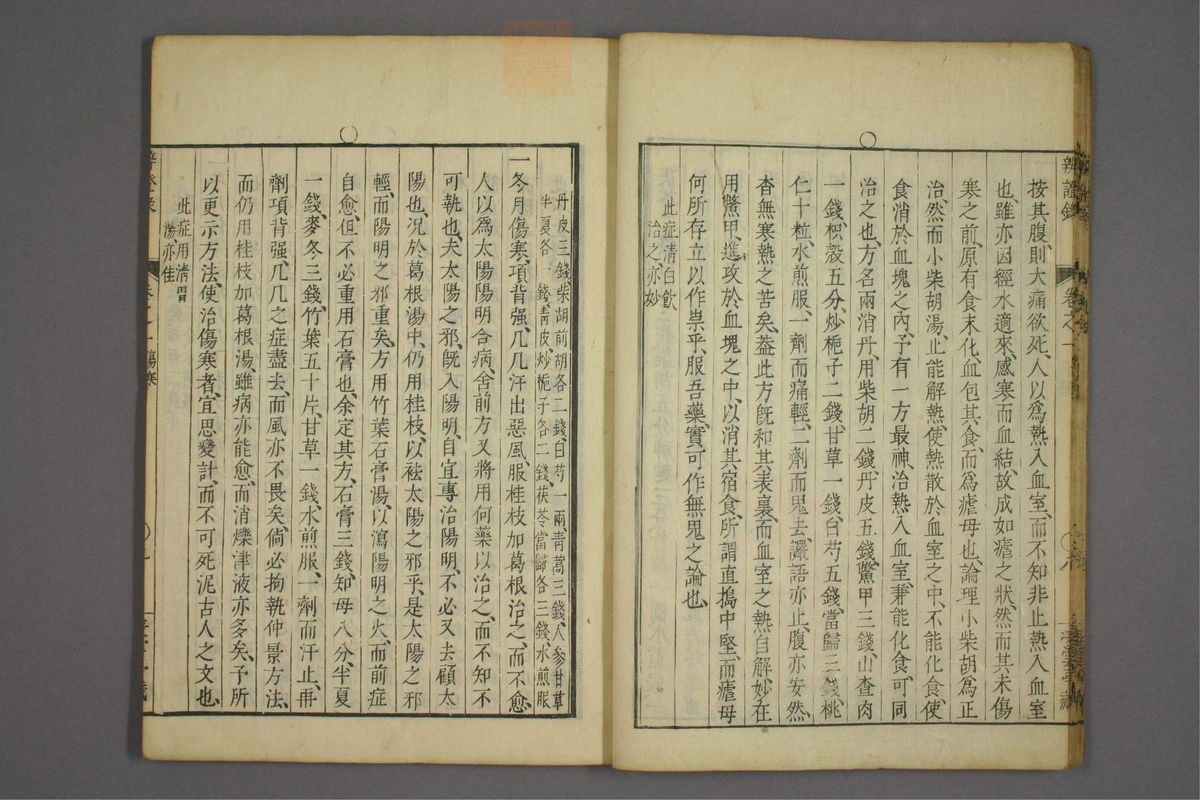 辨證錄
卷之一
按其腹則大痛欲死人以爲熱入血室而不知非止熱入血室
也雖亦因經水適來感寒而血結故成如瘧之狀然而其未傷
寒之前原有食未化血包其食而爲瘧母也論理小柴胡爲正
治然而小柴胡湯止能解熱使熱散於血室之中不能化食使
食消於血塊之內予有一方最神治熱入血室兼能化食可同
治之也方名兩消丹用柴胡二錢丹皮五錢鱉甲三錢山查肉
一錢枳殼五分炒梔子二錢甘草一錢白芍五錢當歸三錢桃
仁十粒水煎服一劑而痛輕二劑而鬼去讝語亦止腹亦安然
杳無寒熱之苦矣葢此方旣和其表裏而血室之熱自解妙在
用鱉甲進攻於血塊之中以消其宿食所謂直搗中堅而瘧母
何所存立以作祟乎服吾藥實可作無鬼之論也
此症淸白飲
治之亦妙
丹皮三錢柴胡前胡各二錢白芍一兩靑蒿三錢人參甘草
半夏各一錢靑皮炒梔子各二錢茯苓當歸各三錢水煎服
一冬月傷寒項背强几几汗出惡風服桂枝加葛根治之而不愈
人以爲太陽陽明合病舍前方又將用何藥以治之而不知不
可執也夫太陽之邪旣入陽明自宜專治陽明不必又去顧太
陽也况於葛根湯中仍用桂枝以袪太陽之邪乎是太陽之邪
輕而陽明之邪重矣方用竹葉石膏湯以瀉陽明之火而前症
自愈但不必重用石膏也余定其方石膏三錢知母八分半夏
一錢麥冬三錢竹葉五十片甘草一錢水煎服一劑而汗止再
劑項背强几几之症盡去而風亦不畏矣倘必拘執仲景方法
而仍用桂枝加葛根湯雖病亦能愈而消爍津液亦多矣予所
以更示方法使治傷寒者宜思變計而不可死泥古人之文也
此症用淸胃
湯亦佳
傷寒